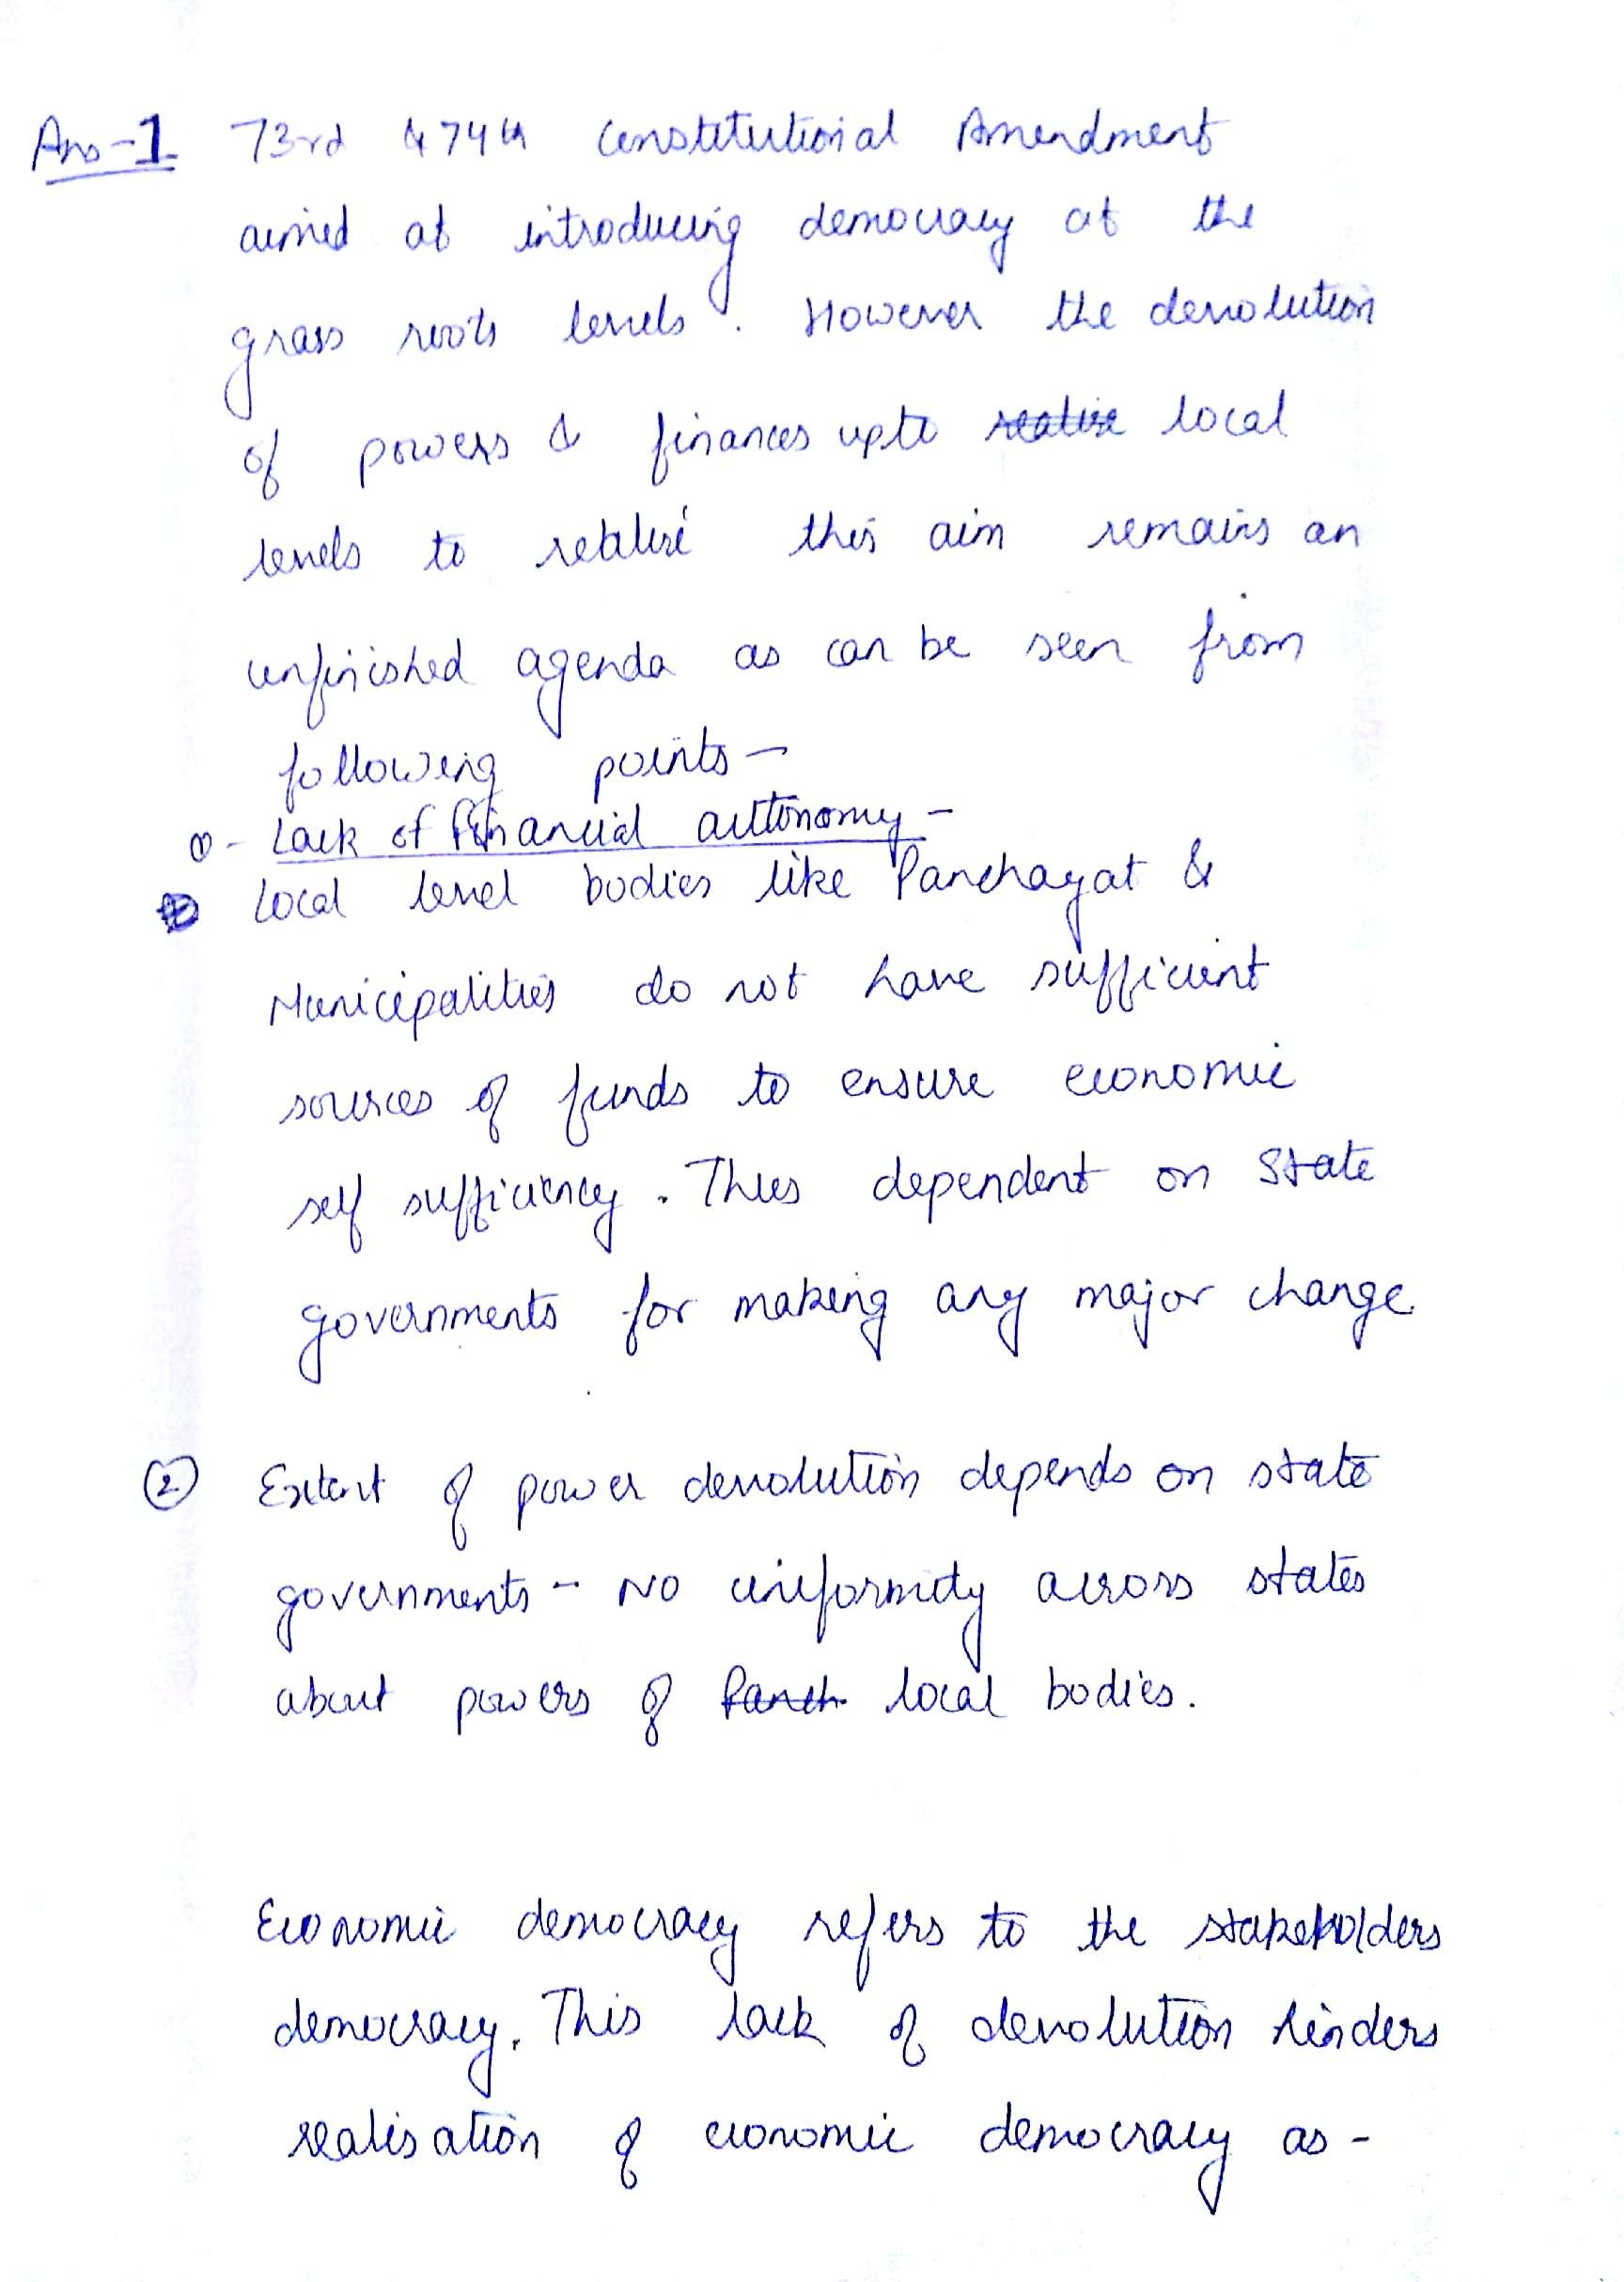 Ans-1 73rd & 74th Constitutional Amendment
aimed at introducing democracy at the
grass roots levels. However the devolution
of powers & finances upto realise local
levels to realise this aim remains an
unfinished agenda as can be seen from
following points -
① - Lack of financial autonomy -
Local level bodies like Panchayat &
Municipalities do not have sufficient
sources of funds to ensure economic
self sufficiency. Thus dependent on State
governments for making any major change.
② Extent of power devolution depends on state
governments - No uniformity across states
about powers of Panch local bodies.
Economic democracy refers to the stakeholders
democracy. This lack of devolution hinders
realisation of economic democracy as -